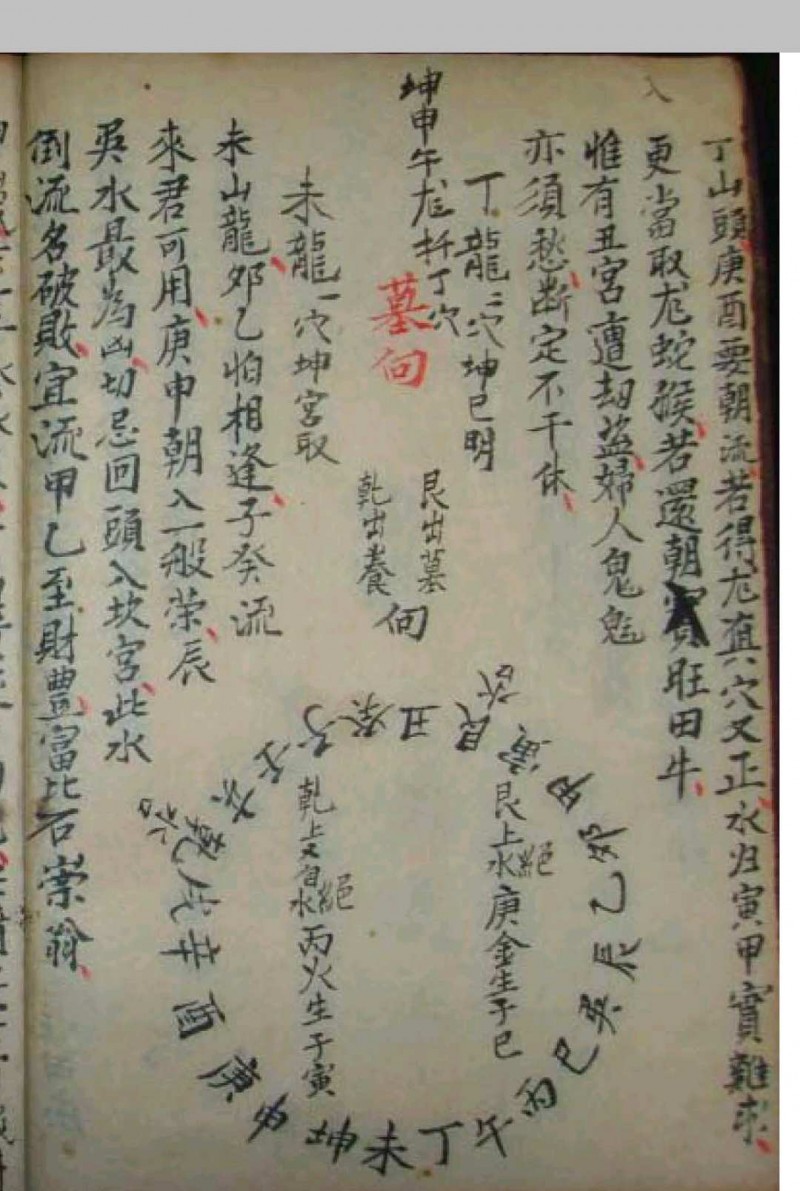 丁山頭庚酉要朝流若得尨真穴又正水归寅甲實難求
更當取尨蛇猴若還朝實旺田牛
惟有丑宮遭刼盜婦人鬼魅
亦須愁断定不干休
丁龍二穴坤巳明
坤申午尨扦丁穴
墓向
艮出墓
乾出養
向
未龍一穴坤宮取
未山龍夘乙怕相逢子癸流
來君可用庚申朝入一般荣辰
巽水最為凶切忌回頭入坎宮此水
倒流名破敗宜流甲乙至財豐富比石崇翁
艮上水絕庚金生于巳
乾上又自水絕丙火生于寅
丑艮寅甲夘乙辰巽巳丙午丁未坤申庚酉辛戌乾亥壬子癸